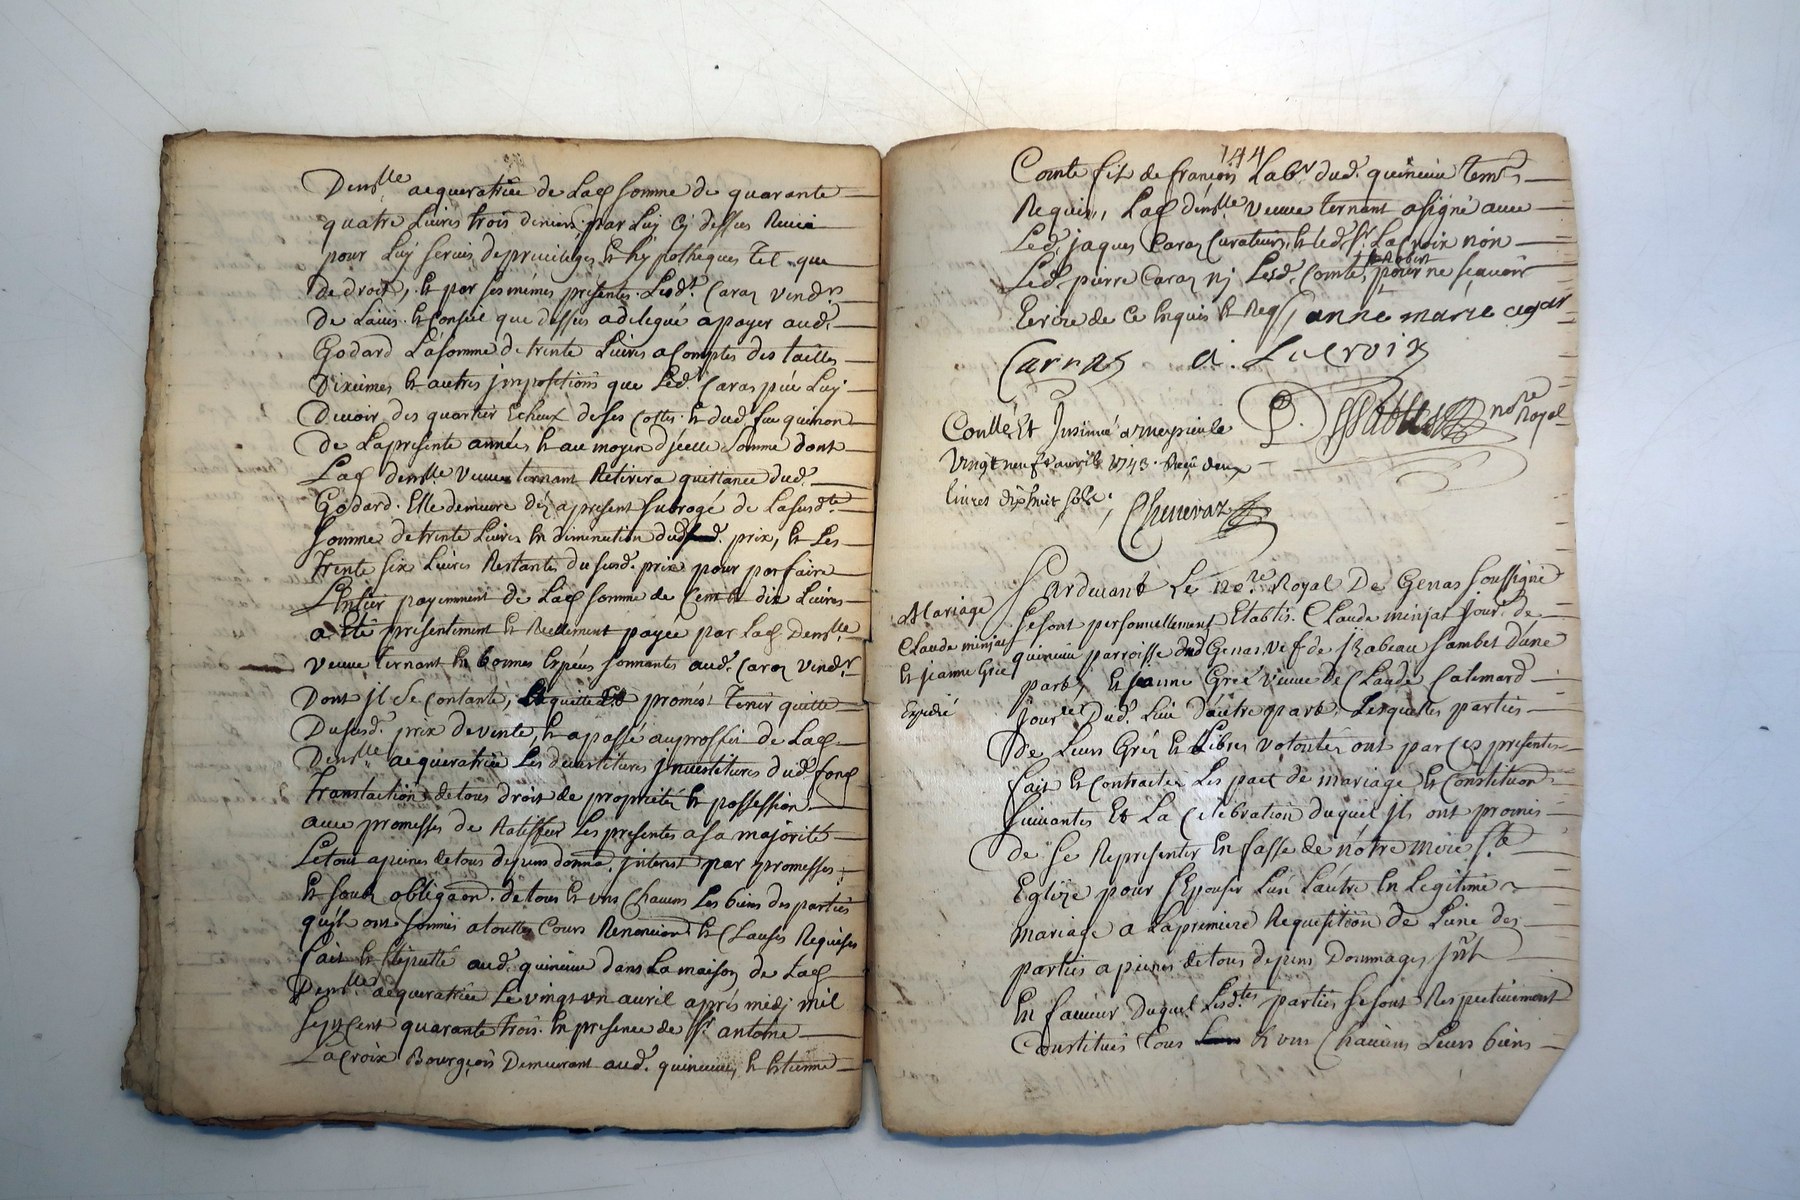 Demlle aequeratrice de Lad somme de quarante
quatre Livres trois deniers par Luy Cy dessus
pour Luy servir de privileges et hypotheques Tel que
de droit, et par ses mémes présentes Ledt. Caraz vendr
De L'avis et Conseil que dessus a delegué a payer aud.
Godard La somme de trente Livres a Compte des tailles
Dixiemes et autres jmpositions que Led. Caraz pére Luy
Devoir des quartier Echeux de ses Cottes et dud feu quinon
De La presente année et au moyen d'jcelle somme dont
Lad demlle veuve ternant Retirera quittance dud.
Godard. Elle demeure déz a present subrogé de La susdte
somme de trente Livres en diminution dud. prix, et Les
trente six Livres Restantes du susd. prix pour parfaire
L'Entier payemment de Lad somme de Cent dix Livres
a Eté présentement et Réellement payée par Lad. Demlle
veuve ternant en bonnes Espéces sonnantes aud. Caraz vendr
Dont jl se Contante, promést Tenir quitte
Du susd. prix de vente, et a passé au proffit de Lad
Demlle aequeratrice Les devestitures jnvestitures dud. fond
Translaction de tous droit de proprieté et possession
avec promesses de Ratiffier Les presentes a sa majorité
Le tout a peines de tous depens domma. jnterest par promesses
Et sous obligaon. de tous et uns Chacuns Les biens des parties
qu'ils ont soumis a touttes Cours Renonciaon et Clauses Requises
fait et Récitté aud. quincieu dans La maison de Lad
Demlle aequeratrice Le vingt un avril aprés midj mil
sept Cent quarante trois. En presence de Sr antoine
LaCroix Bourgeois Demeurant aud. quincieu, et Etienne
144
Comte fils de françois Labr. dud. quincieu tems
Requis, Lad demlle veuve ternant a signé avec
Led. jaques Caraz Curateur, et led. Sr. La Croix non
Led. pierre Caraz nj Lesd. Comte, pour ne sçavoir
Ecrire de Ce Enquis et Req janne marie
Carraz a. Lacroix
P. nore Royal
Conllé Et Jnsinué a meyzieu le
vingt neuf avril 1743. Reçu deux
livres dixhuit sols.
Chenevaz
Mariage
Claude minjat
Et jeanne Gréé
Expedié
Pardevant Le nore. Royal De Genas soussigné
se sont personnellement Etablis. Claude minjat jour. de
quincieu parroisse dud Genas, vef de jzabeau sambet d'une
part, Et jeanne Gréé veuve De Claude Calemard
jourlier Dud. Lieu d'autre part. Lesquelles parties
De Leurs Gréz Et Libres volontés ont par Ces presentes
fait Et Contracté Les pact de mariage Et Constitution
suivantes Et La Celebration duquel jls ont promis
De se Représenter En fasse de nótre mére Ste
Eglize pour s'Epouser L'un L'autre En Legitime
mariage a La premiere Requesition de L'une des
parties a peines de tous depens Dommages jnt
En faveur Duquel Lesdtes parties se sont Respectivement
Constitués Tous et uns Chacuns Leurs biens